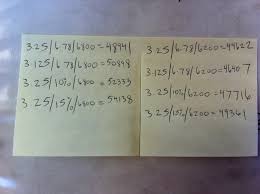 3.25/6.78/6800 = 48941
3.125/6.78/6800 = 50898
3.25/10%/6800 = 52333
3.25/15%/6800 = 54138
3.25/6.78/6200 = 44622
3.125/6.78/6200 = 46407
3.25/10%/6200 = 47716
3.25/15%/6200 = 49361